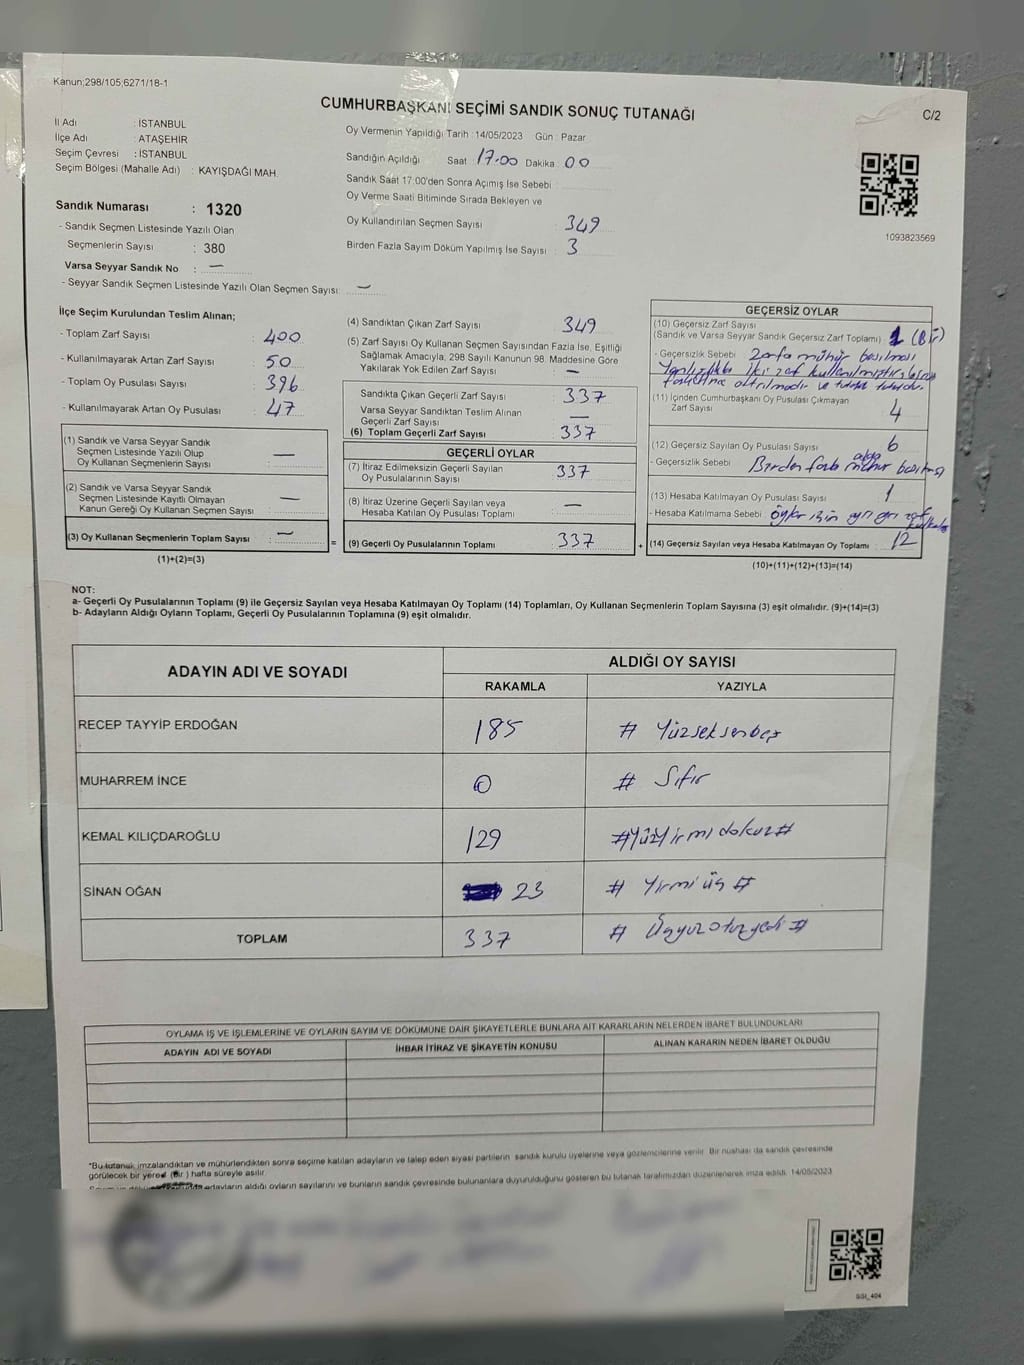 Kanun;298/105;6271/18-1
CUMHURBAŞKANI SEÇİMİ SANDIK SONUÇ TUTANAĞI
C/2
İl Adı : İSTANBUL
İlçe Adı : ATAŞEHİR
Seçim Çevresi : İSTANBUL
Seçim Bölgesi (Mahalle Adı) : KAYIŞDAĞI MAH.
Sandık Numarası : 1320
- Sandık Seçmen Listesinde Yazılı Olan
Seçmenlerin Sayısı : 380
Varsa Seyyar Sandık No : —
- Seyyar Sandık Seçmen Listesinde Yazılı Olan Seçmen Sayısı: —
Oy Vermenin Yapıldığı Tarih : 14/05/2023 Gün : Pazar
Sandığın Açıldığı Saat : 17.00 Dakika : 00
Sandık Saat 17:00'den Sonra Açımış İse Sebebi :
Oy Verme Saati Bitiminde Sırada Bekleyen ve
Oy Kullandırılan Seçmen Sayısı : 349
Birden Fazla Sayım Döküm Yapılmış İse Sayısı : 3
1093823569
İlçe Seçim Kurulundan Teslim Alınan;
- Toplam Zarf Sayısı : 400
- Kullanılmayarak Artan Zarf Sayısı : 50
- Toplam Oy Pusulası Sayısı : 396
- Kullanılmayarak Artan Oy Pusulası : 47
(1) Sandık ve Varsa Seyyar Sandık
Seçmen Listesinde Yazılı Olup
Oy Kullanan Seçmenlerin Sayısı : —
(2) Sandık ve Varsa Seyyar Sandık
Seçmen Listesinde Kayıtlı Olmayan
Kanun Gereği Oy Kullanan Seçmen Sayısı : —
(3) Oy Kullanan Seçmenlerin Toplam Sayısı : —
(1)+(2)=(3)
(4) Sandıktan Çıkan Zarf Sayısı : 349
(5) Zarf Sayısı Oy Kullanan Seçmen Sayısından Fazla İse, Eşitliği
Sağlamak Amacıyla, 298 Sayılı Kanunun 98. Maddesine Göre
Yakılarak Yok Edilen Zarf Sayısı : —
Sandıkta Çıkan Geçerli Zarf Sayısı : 337
Varsa Seyyar Sandıktan Teslim Alınan
Geçerli Zarf Sayısı : —
(6) Toplam Geçerli Zarf Sayısı : 337
GEÇERLİ OYLAR
(7) İtiraz Edilmeksizin Geçerli Sayılan
Oy Pusulalarının Sayısı : 337
(8) İtiraz Üzerine Geçerli Sayılan veya
Hesaba Katılan Oy Pusulası Toplamı : —
= (9) Geçerli Oy Pusulalarının Toplamı : 337 +
GEÇERSİZ OYLAR
(10) Geçersiz Zarf Sayısı
(Sandık ve Varsa Seyyar Sandık Geçersiz Zarf Toplamı) : 1 (Bir)
- Geçersizlik Sebebi : Zarfa mühür basılması
Yanlışlıkla iki zarf
(11) İçinden Cumhurbaşkanı Oy Pusulası Çıkmayan
Zarf Sayısı : 4
(12) Geçersiz Sayılan Oy Pusulası Sayısı : 6
- Geçersizlik Sebebi : Birden fazla mühür basılması
(13) Hesaba Katılmayan Oy Pusulası Sayısı : 1
- Hesaba Katılmama Sebebi : ayrı zarf
(14) Geçersiz Sayılan veya Hesaba Katılmayan Oy Toplamı : 12
(10)+(11)+(12)+(13)=(14)
NOT:
a- Geçerli Oy Pusulalarının Toplamı (9) ile Geçersiz Sayılan veya Hesaba Katılmayan Oy Toplamı (14) Toplamları, Oy Kullanan Seçmenlerin Toplam Sayısına (3) eşit olmalıdır. (9)+(14)=(3)
b- Adayların Aldığı Oyların Toplamı, Geçerli Oy Pusulalarının Toplamına (9) eşit olmalıdır.
ADAYIN ADI VE SOYADI ALDIĞI OY SAYISI
RAKAMLA YAZIYLA
RECEP TAYYİP ERDOĞAN 185 # Yüzseksenbeş
MUHARREM İNCE 0 # Sıfır
KEMAL KILIÇDAROĞLU 129 #Yüzyirmidokuz#
SİNAN OĞAN 23 # Yirmiüç #
TOPLAM 337 # Üçyüzotuzyedi #
OYLAMA İŞ VE İŞLEMLERİNE VE OYLARIN SAYIM VE DÖKÜMÜNE DAİR ŞİKAYETLERLE BUNLARA AİT KARARLARIN NELERDEN İBARET BULUNDUKLARI
ADAYIN ADI VE SOYADI İHBAR İTİRAZ VE ŞİKAYETİN KONUSU ALINAN KARARIN NEDEN İBARET OLDUĞU
*Bu tutanak imzalandıktan ve mühürlendikten sonra seçime katılan adayların ve talep eden siyasi partilerin sandık kurulu üyelerine veya gözlemcilerine verilir. Bir nushası da sandık çevresinde
görülecek bir yere (Bir ) hafta süreyle asılır.
adayların aldığı oyların sayılarını ve bunların sandık çevresinde bulunanlara duyurulduğunu gösteren bu tutanak tarafımızdan düzenlenerek imza edildi. 14/05/2023
SGI_404